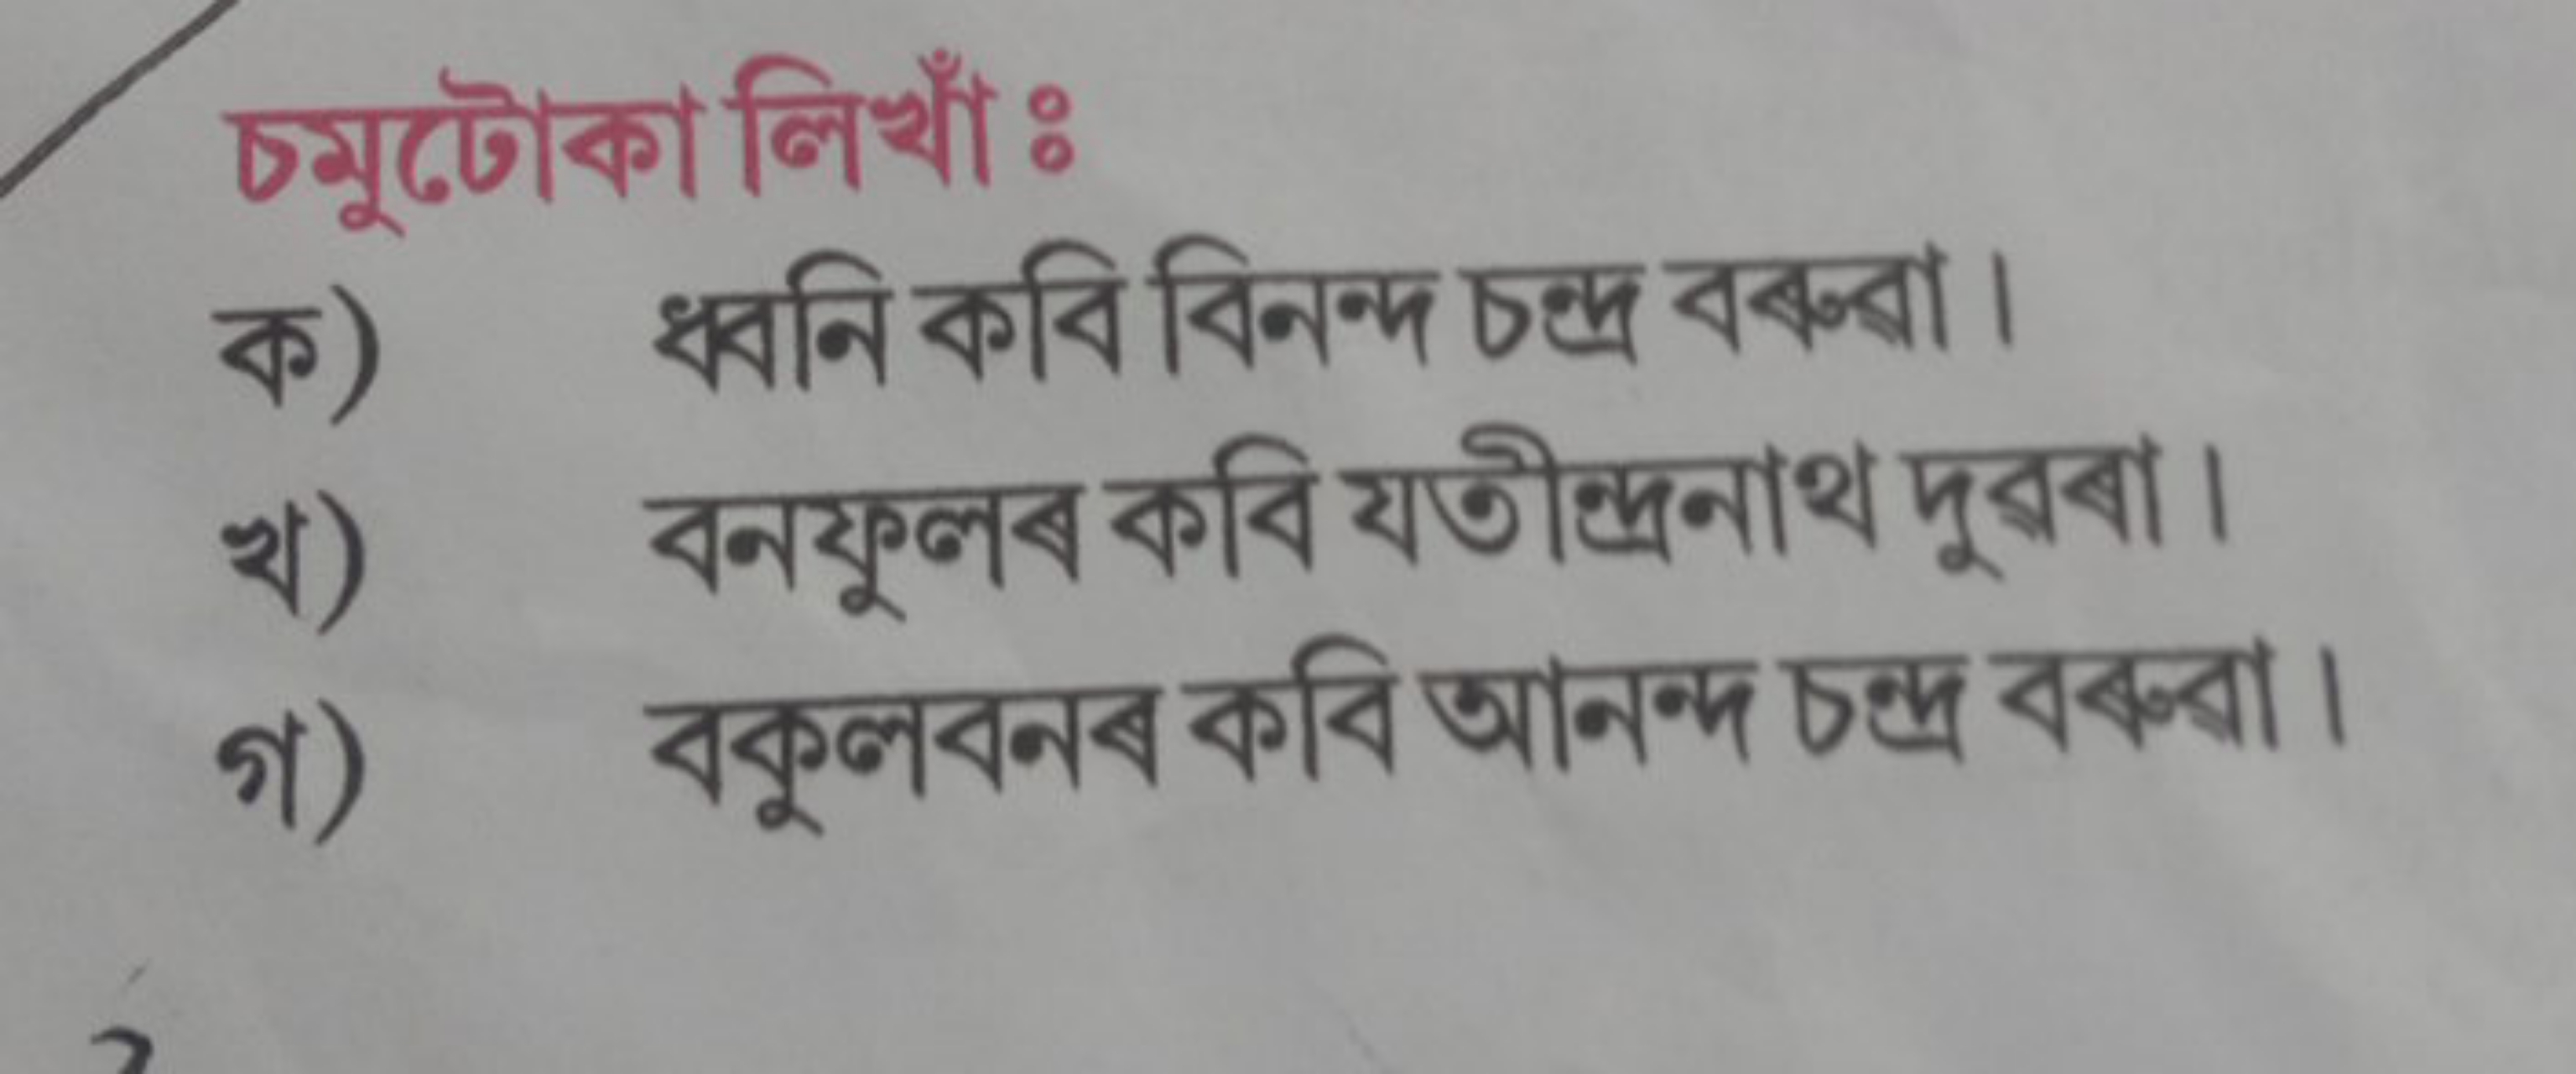 চমুটোকা লিখাঁ ঃ
ক) ধ্বনি কবি বিনন্দ চন্দ্ৰ বৰুৱা।
খ) বনফুলৰ কবি যতীন্দ্ৰনাথ দুৱৰা।
গ) বকুলবনৰ কবি আনন্দ চন্দ্ৰ বৰুৱা।